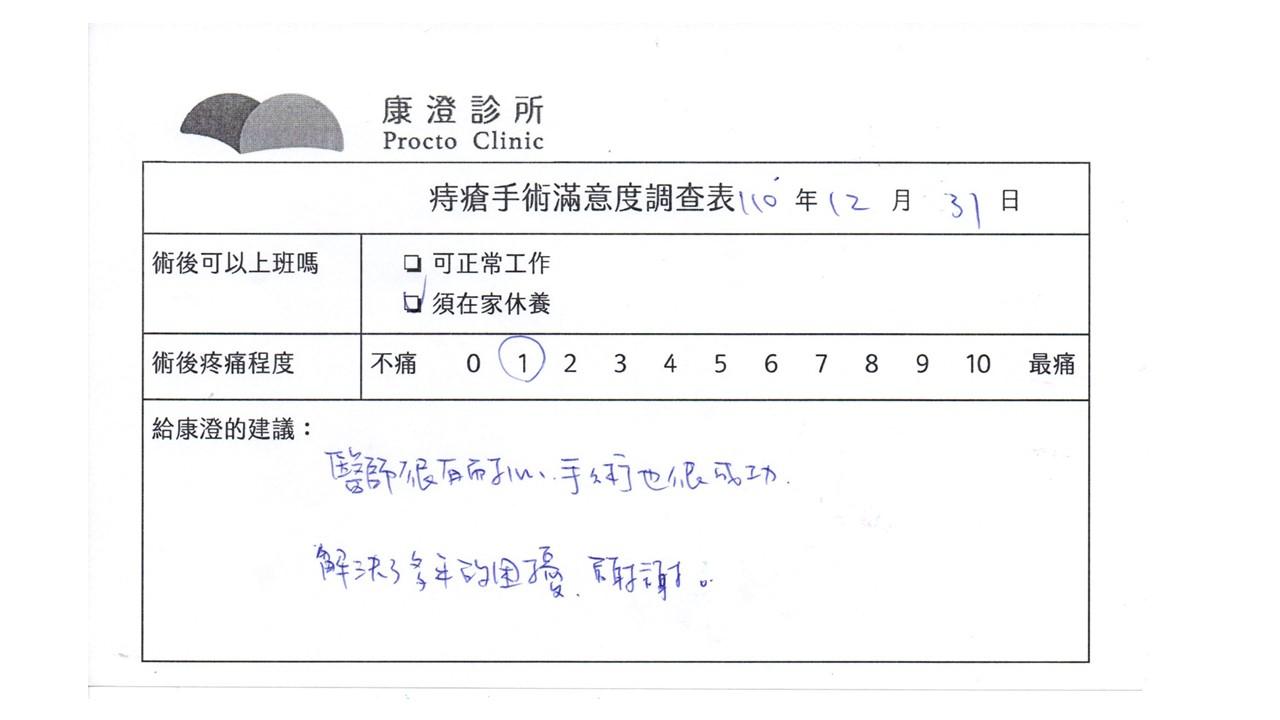 康澄診所
Procto Clinic
痔瘡手術滿意度調查表 110 年 12 月 31 日
術後可以上班嗎
可正常工作
須在家休養
術後疼痛程度 不痛 0 1 2 3 4 5 6 7 8 9 10 最痛
給康澄的建議：
醫師很有耐心、手術也很成功.
解決了多年的困擾、謝謝。